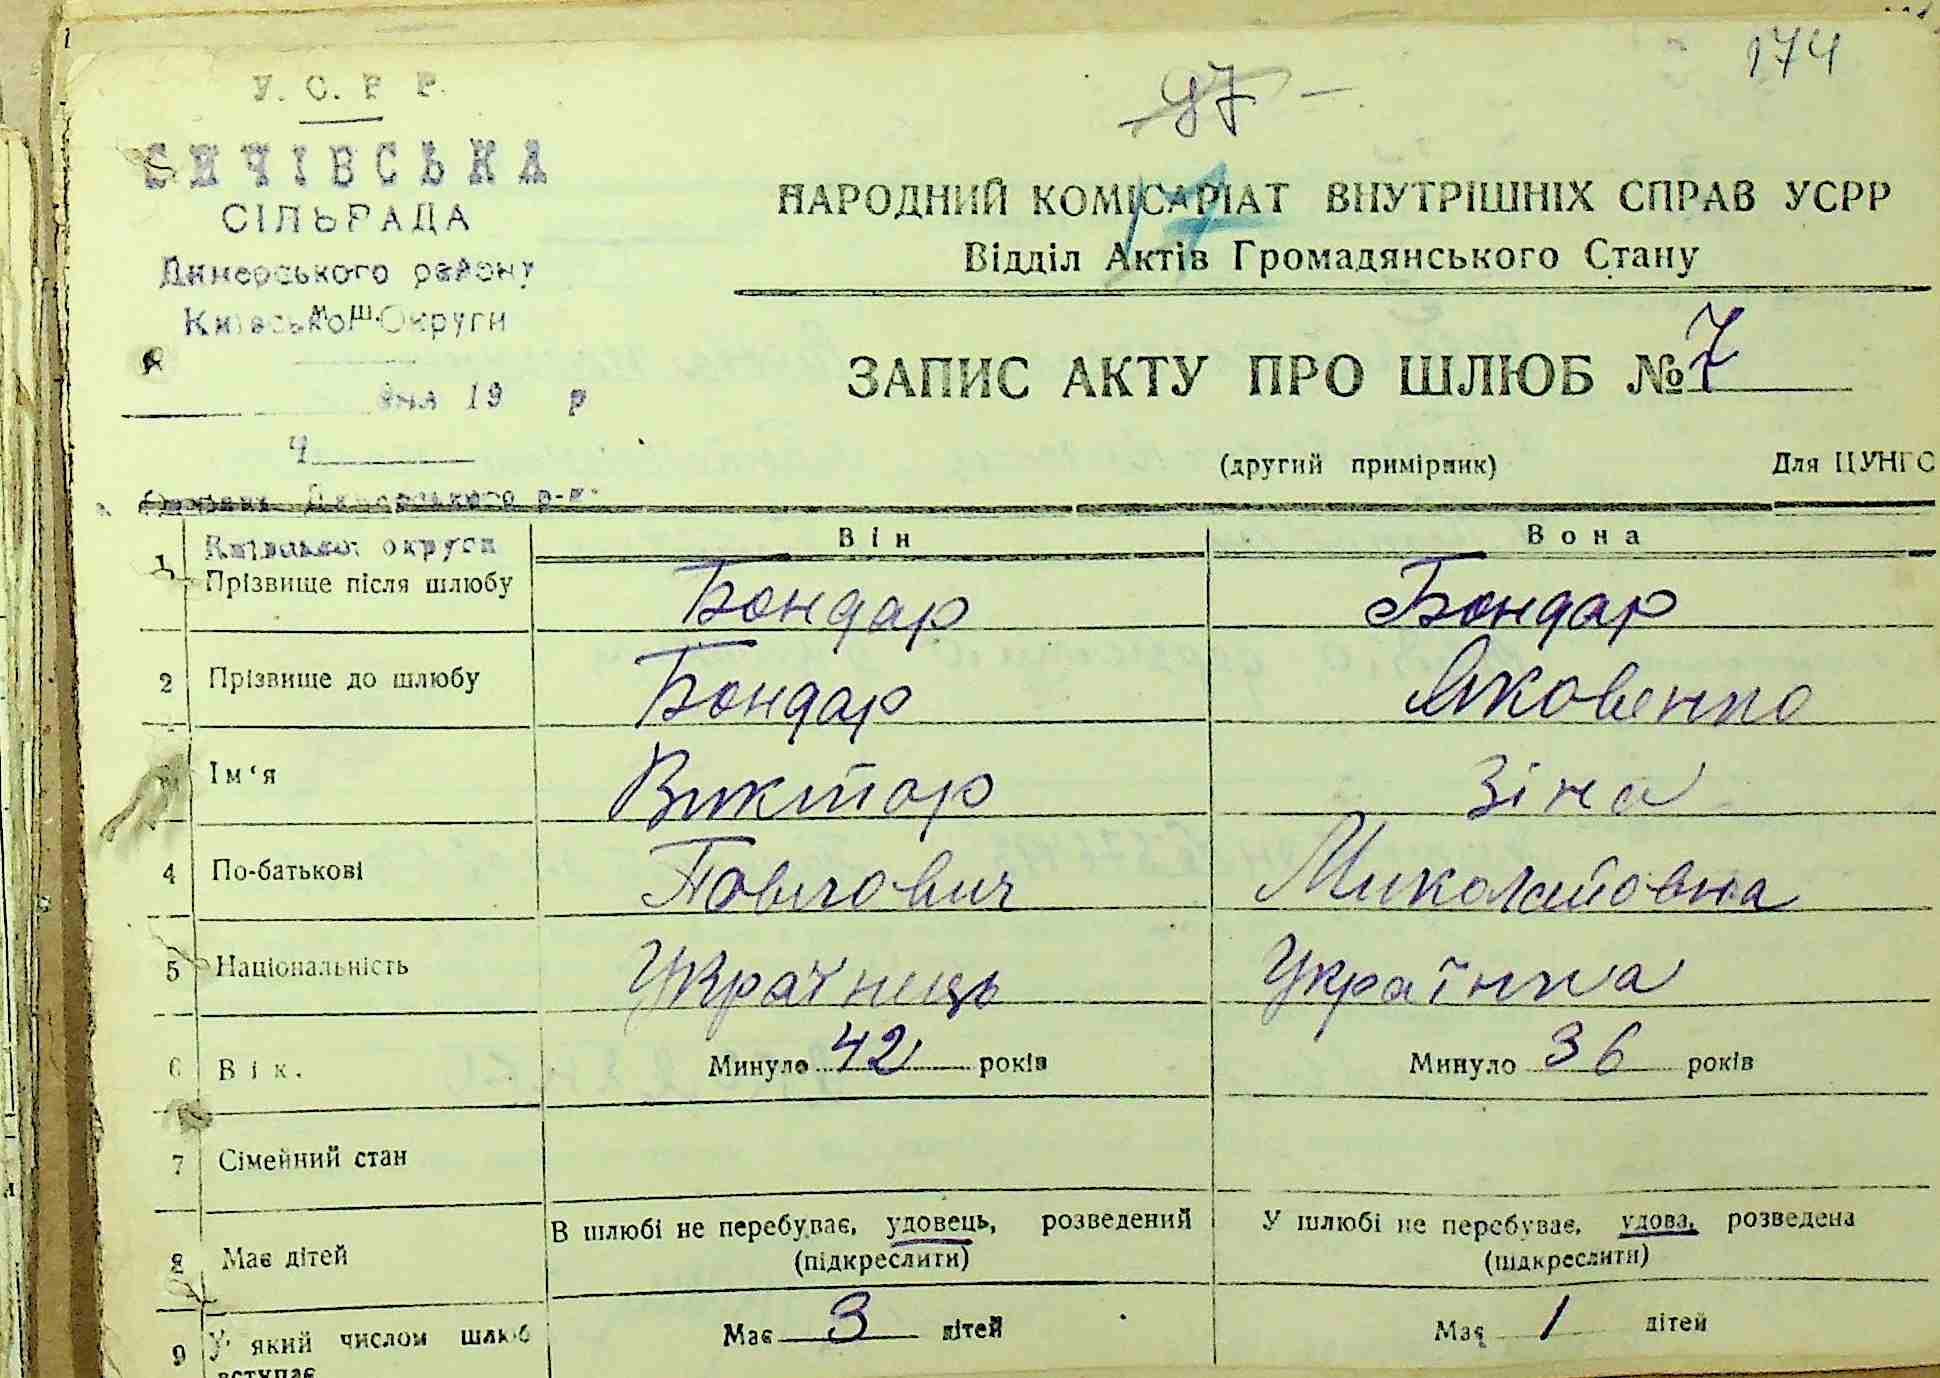 174
97 -
У. С. Р. Р.
СИЧІВСЬКА
СІЛЬРАДА
Димерського району
Київської Округи
м. ш.
дня 19 р
Ч
Димерського р-н.
Київської округи
17
НАРОДНИЙ КОМІСАРІАТ ВНУТРІШНІХ СПРАВ УСРР
Відділ Актів Громадянського Стану
ЗАПИС АКТУ ПРО ШЛЮБ № 7
(другий примірник) Для ЦУНГО
Він Вона
1 Прізвище після шлюбу Бондар Бондар
2 Прізвище до шлюбу Бондар Яковенко
Ім‘я Виктор Зіна
4 По-батькові Повлович Миколайовна
5 Національність Українець Українка
6 Вік. Минуло 42 років Минуло 36 років
7 Сімейний стан
В шлюбі не перебуває, удовець, розведений У шлюбі не перебуває, удова, розведена
8 Має дітей (підкреслити) (підкреслити)
Має 3 дітей Має 1 дітей
9 У який числом шлюб
вступає